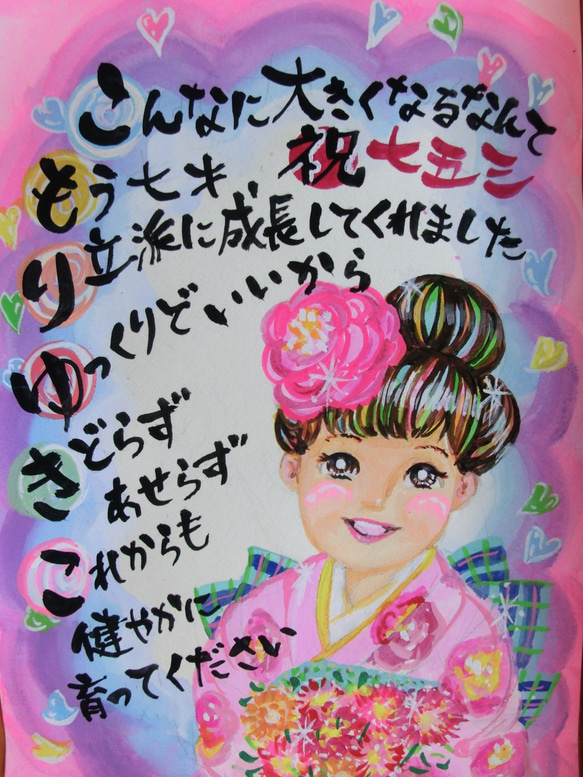 こんなに大きくなるなんて
祝七五三
もう七才、
立派に成長してくれました
ゆっくりでいいから
きどらず
あせらず
これからも
健やかに
育ってください